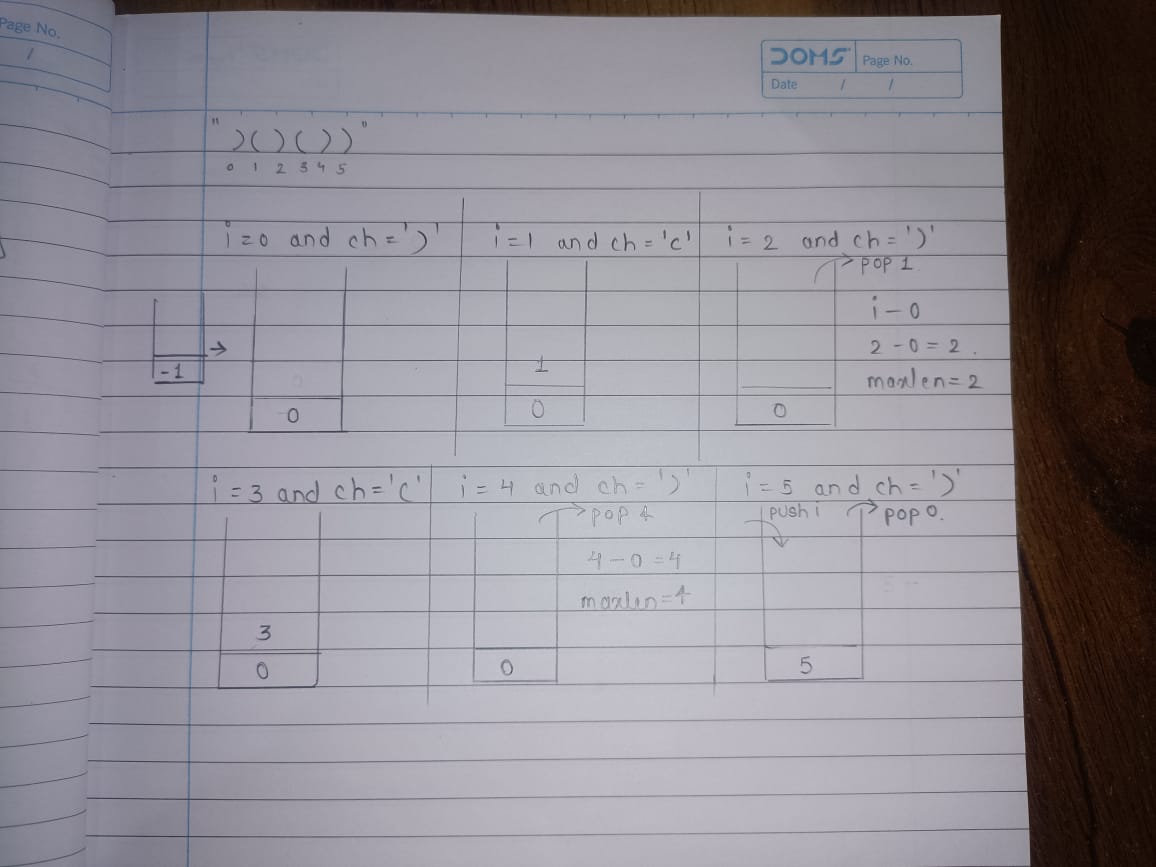 Page No.
/
DOMS Page No.
Date / /
")()())"
0 1 2 3 4 5
i=0 and ch=')'
-1 →
0
i=1 and ch='('
1
0
i=2 and ch=')'
pop 1
i-0
2-0=2.
maxlen=2
0
i=3 and ch='('
3
0
i=4 and ch=')'
4-0=4
maxlen=4
0
i=5 and ch=')'
push i
pop 0.
5